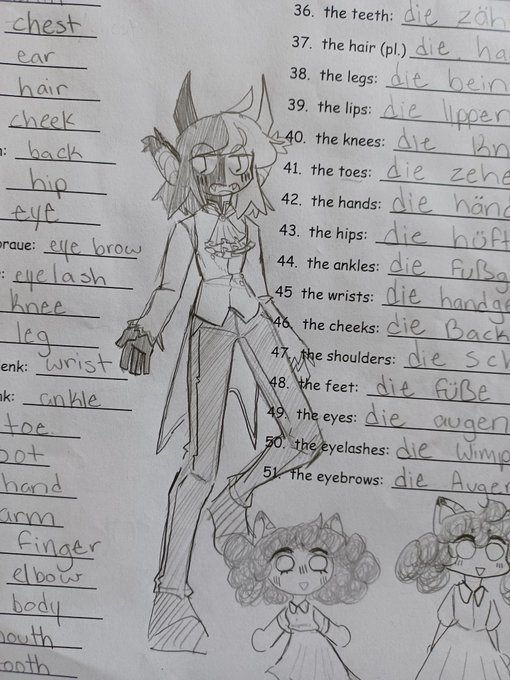 chest
ear
hair
cheek
back
hip
eye
braue: eye brow
eyelash
knee
leg
enk: wrist
nk: ankle
toe
oot
hand
arm
finger
elbow
body
mouth
tooth
36. the teeth: die zäh
37. the hair (pl.) die ha
38. the legs: die bein
39. the lips: die lippen
40. the knees: die Kn
41. the toes: die zehe
42. the hands: die händ
43. the hips: die hüft
44. the ankles: die Fußg
45 the wrists: die handge
46. the cheeks: die Back
47. the shoulders: die Sch
48. the feet: die füße
49. the eyes: die augen
50. the eyelashes: die Wimp
51. the eyebrows: die Auge